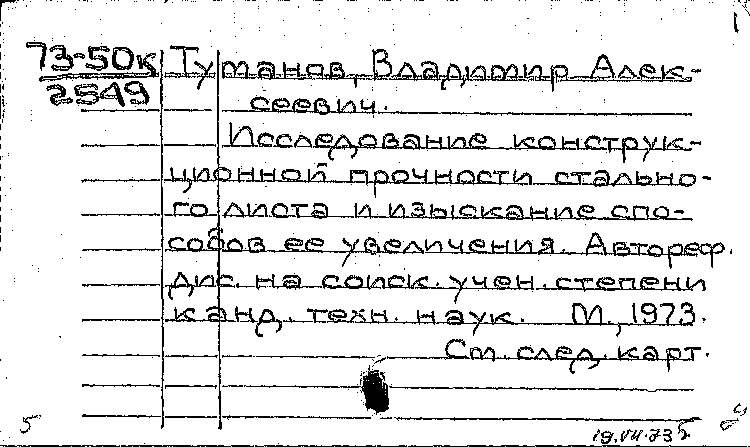 1
73-50к Туманов, Владимир Алек-
2549 сеевич.
Исследование конструк-
ционной прочности стально-
го листа и изыскание спо-
собов ее увеличения. Автореф.
дис. на соиск. учен. степени
канд. техн. наук. М., 1973.
См. след. карт.
5
19.VII.73